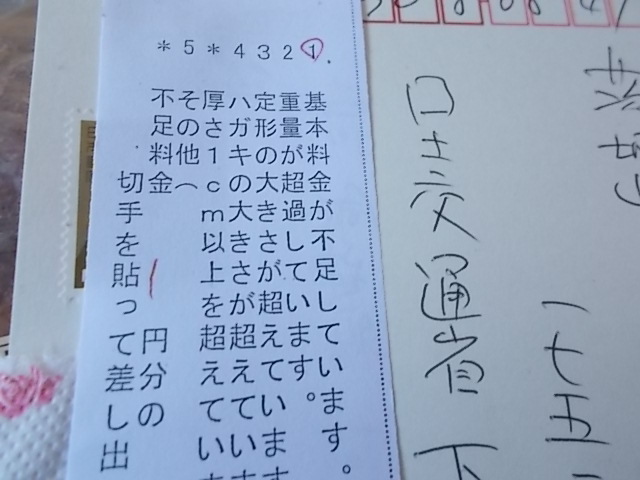 一七五
国土交通省 下
1.基本料金が不足しています。
2重量が超過しています。
3定形の大きさが超えています
4ハガキの大きさが超えていま
*厚さ1cm以上を超えてい
5その他(
*不足料金 / 円分の
切手を貼って差し出